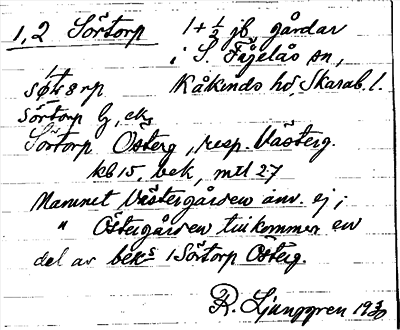 1,2 Sörtorp 1 + 1/2 jb, gårdar
i S. Fågelås sn,
Kåkinds hd, Skarab. l.
Sörtorp
Sörtorp Österg, resp. Västerg.
kb 15, bek, mtl 27
Namnet Västergården anv. ej;
" Östergården tillkommer en
del av beks 1 Sörtorp Österg.
R. Ljunggren 1930